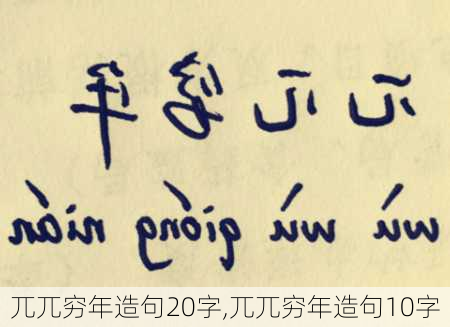 兀兀穷年
wù wù qióng nián
兀兀穷年造句20字,兀兀穷年造句10字